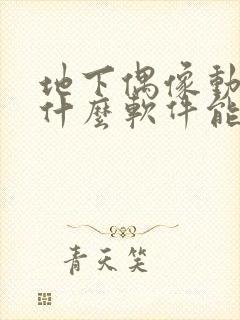 地下偶像動
什麼軟件能
青天笑